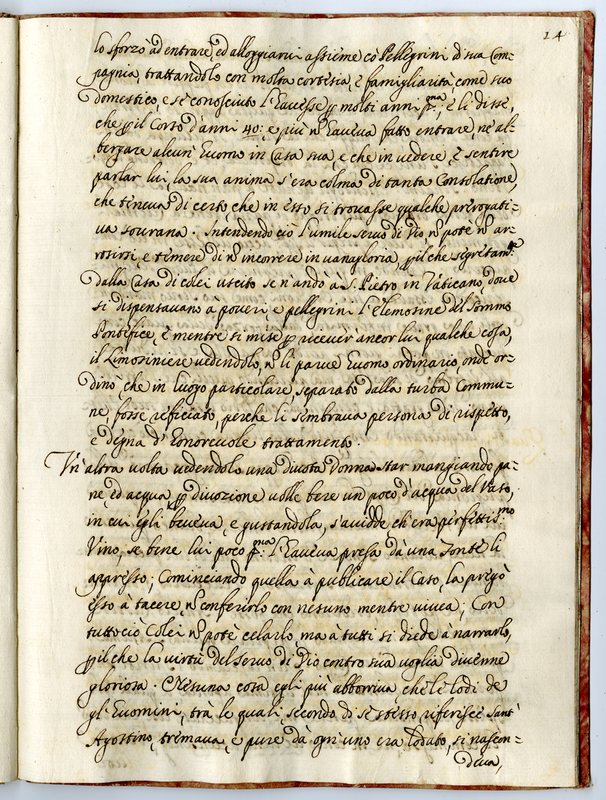 14
lo sforzò ad entrare, ed alloggiarui assieme cò Pellegrini di sua Com-
pagnia, trattandolo con molta cortesia, e famigliarità, come suo
domestico, e se conosciuto l'hauesse p molti anni pma, e li disse,
che p il Corso d'anni 40: e più nō haueua fatto entrare, nè al-
bergare alcun' huomo in Casa sua, e che in uedere, e sentire
parlar lui, la sua anima s'era colma di tanta Consolatione,
che teneua di certo che in esso si trouasse qualche prerogati-
ua sourana. Intendendo ciò l'umile seruo di Dio nō potè nō ar-
rosirsi, e temere di nō incorrere in uanagloria, p il che segretamte
dalla Casa di colei uscito se n'andò à S. Pietro in Vaticano, doue
si dispensauano à poueri, e pellegrini l'elemosine del Sommo
Pontefice, e mentre si mise p riceuer ancor lui qualche cosa,
il Limosiniere uedendolo, nō li parue huomo ordinario, onde or-
dinò, che in luogo particolare, separato dalla turba Commu-
ne, fosse reficiato, perche li sembraua persona di rispetto,
e degna d' honoreuole trattamento.
Un' altra uolta uedendolo una diuota Donna star mangiando pa-
ne, ed acqua p diuozione uolle bere un poco d'acqua del Vaso,
in cui egli beueua, e gustandola, s'auidde ch'era perfettismo
Vino, se bene lui poco pma: l'haueua presa dà una fonte li
appresso; Cominciando quella à publicare il Caso, la pregò
esso à tacere, nō conferirlo con nesuno mentre uiuea; Con
tuttociò Colei nō potè celarlo, ma à tutti si diede à narrarlo,
p il che la uirtù del Seruo di Dio contro sua uoglia diuenne
gloriosa. Nesuna cosa egli più abborriua che le lodi de
gl' huomini, trà le quali, secondo di se stesso riferisce Sant'
Agostino, tremaua, e pure dà ogn' uno era lodato, si nascon-
deua,